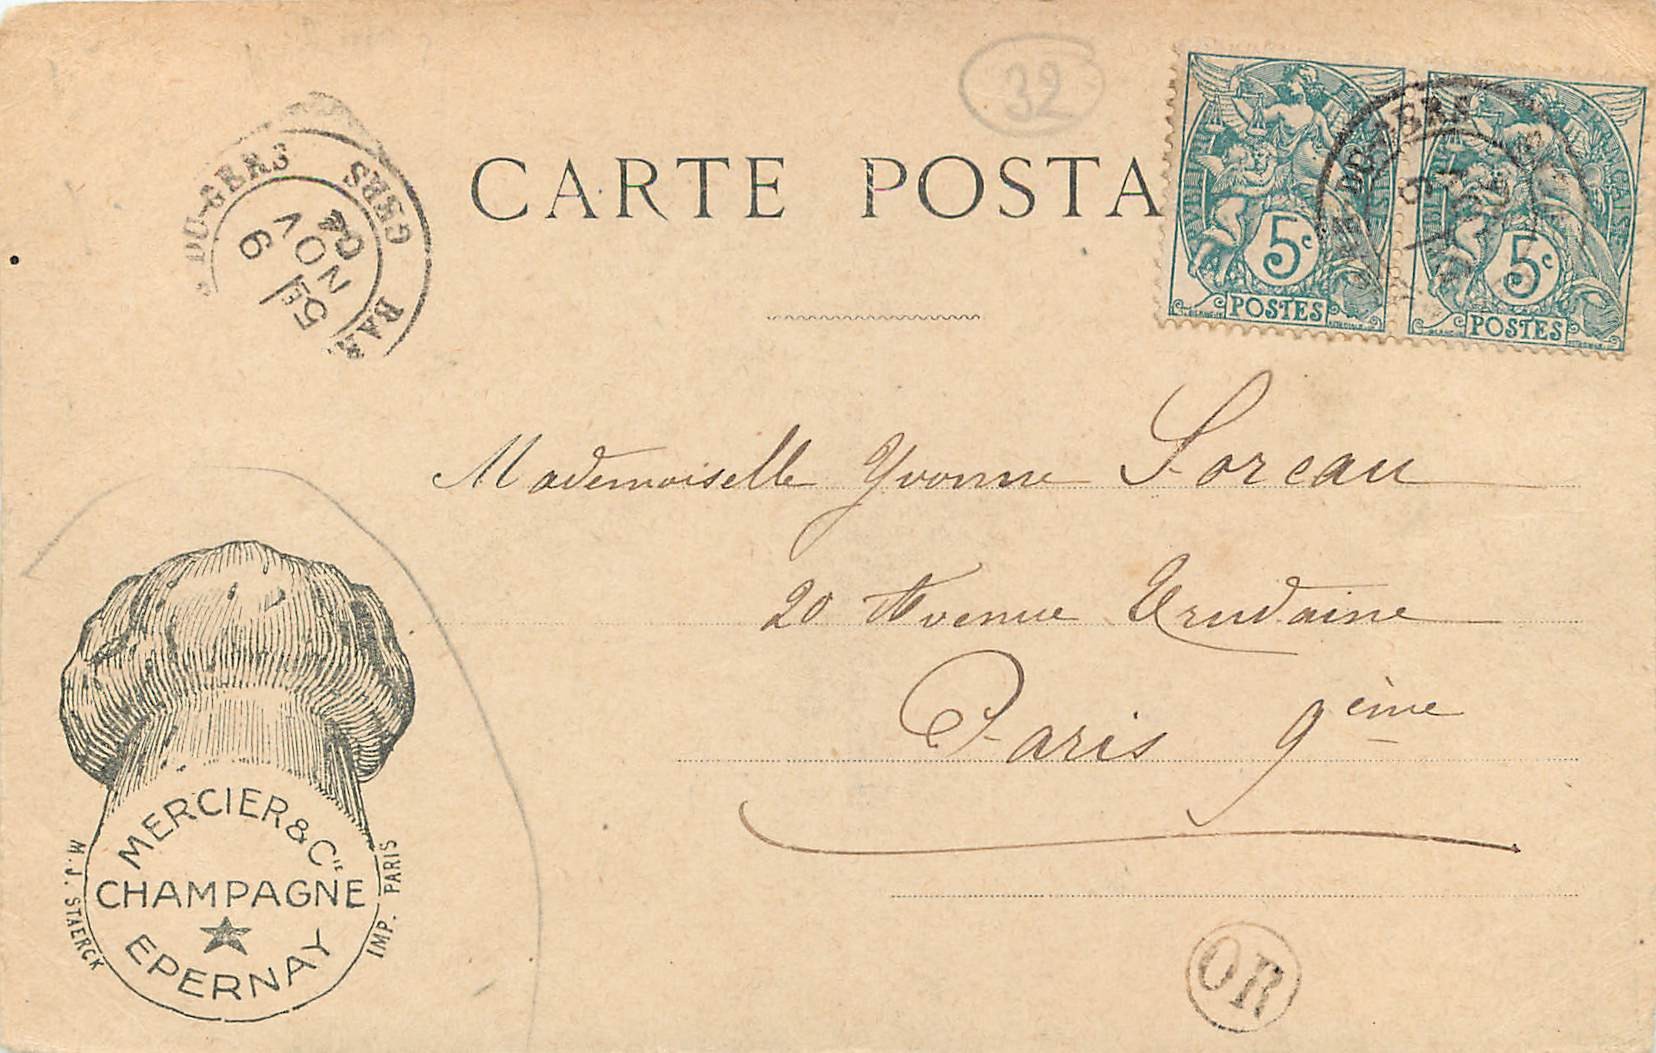 32
CARTE POSTA
5c
POSTES
5c
POSTES
DU-GERS
GERS
5E
9
NOV
04
Mademoiselle Yvonne Soreau
20 Avenue Trudaine
Paris 9ème
MERCIER & Cie
CHAMPAGNE
EPERNAY
M. J. STAERCK
IMP. PARIS
OR